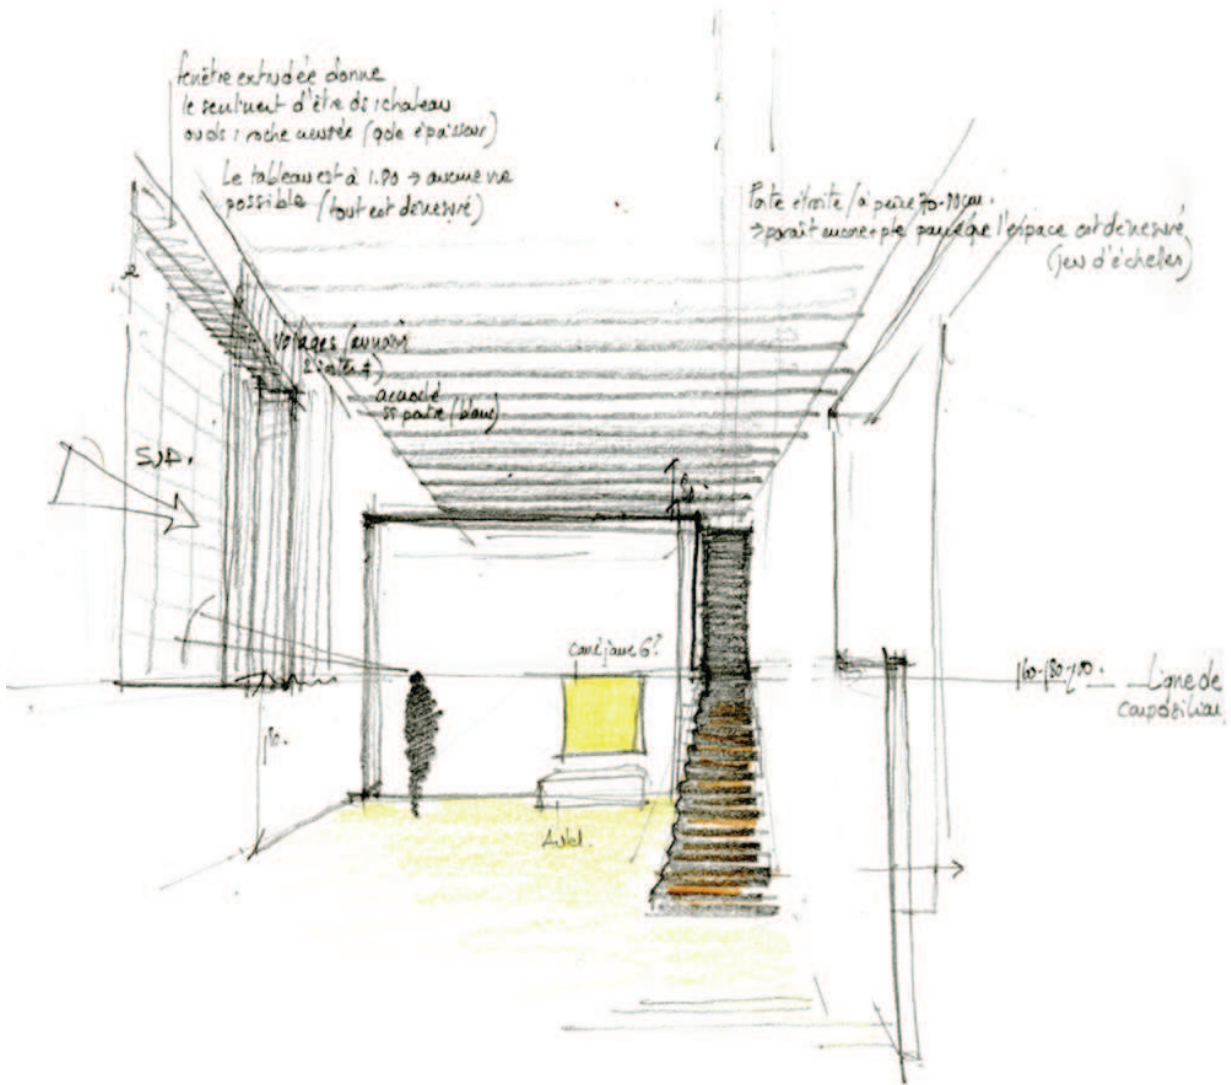 fenêtre extrudée donne
le sentiment d'être ds 1 chateau
ou ds 1 roche creusée (gde épaisseur)
Le tableau est à 1.80 → aucune vue
possible (tout est démesuré)
Porte étroite / à peine 70-90 cm.
→ paraît encore + pte parce que l'espace est démesuré
(jeu d'échelles)
acuité
ss poutre (blanc)
SUD.
carré jaune 6?
160-180-200. Ligne de
composition
180.
Autel.